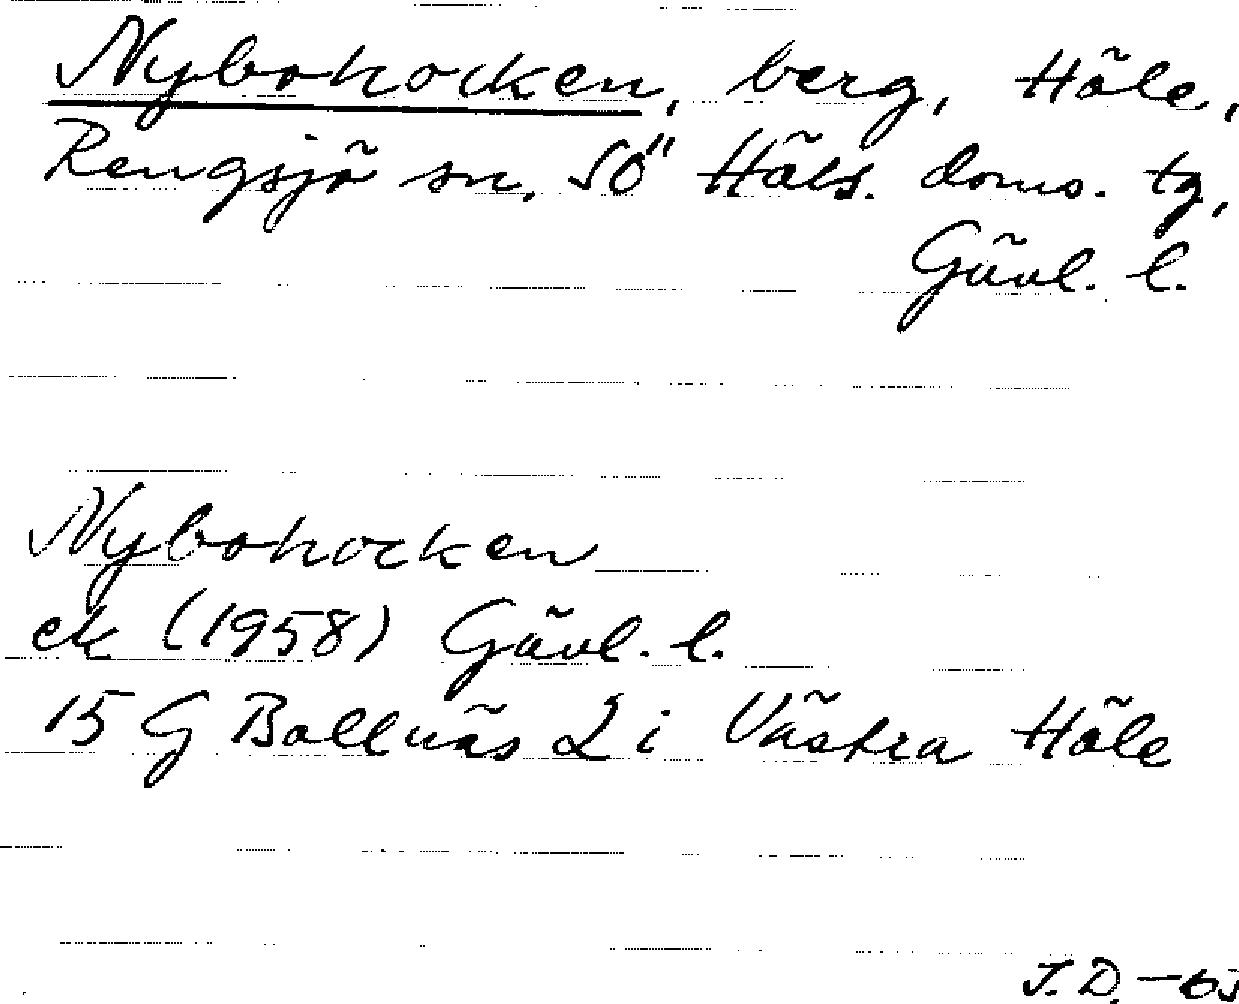 Nybohocken, berg, Höle,
Rengsjö sn, SÖ Häls. doms. tg,
Gävl. l.
Nybohocken
ek (1958) Gävl. l.
15 G Bollnäs 2 i Västra Höle
J. D. -63